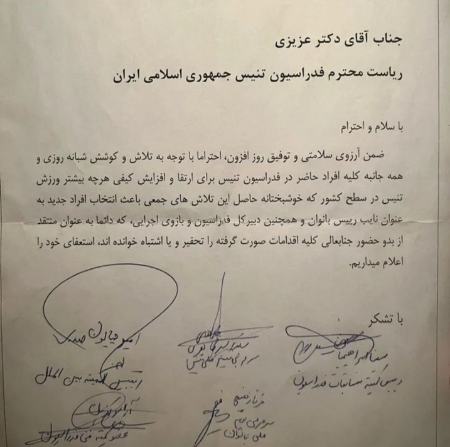 جناب آقای دکتر عزیزی
ریاست محترم فدراسیون تنیس جمهوری اسلامی ایران
با سلام و احترام
ضمن آرزوی سلامتی و توفیق روز افزون، احتراما با توجه به تلاش و کوشش شبانه روزی و
همه جانبه کلیه افراد حاضر در فدراسیون تنیس برای ارتقا و افزایش کیفی هرچه بیشتر ورزش
تنیس در سطح کشور که خوشبختانه حاصل این تلاش های جمعی باعث انتخاب افراد جدید به
عنوان نایب رییس بانوان و همچنین دبیرکل فدراسیون و بازوی اجرایی، که دائما به عنوان منتقد
از بدو حضور جنابعالی کلیه اقدامات صورت گرفته را تحقیر و یا اشتباه خوانده اند، استعفای خود را
اعلام میداریم.
با تشکر
رییس کمیته مسابقات فدراسیون
امیر همایون
رییس کمیته بین الملل
سرمربی تیم
ملی بانوان